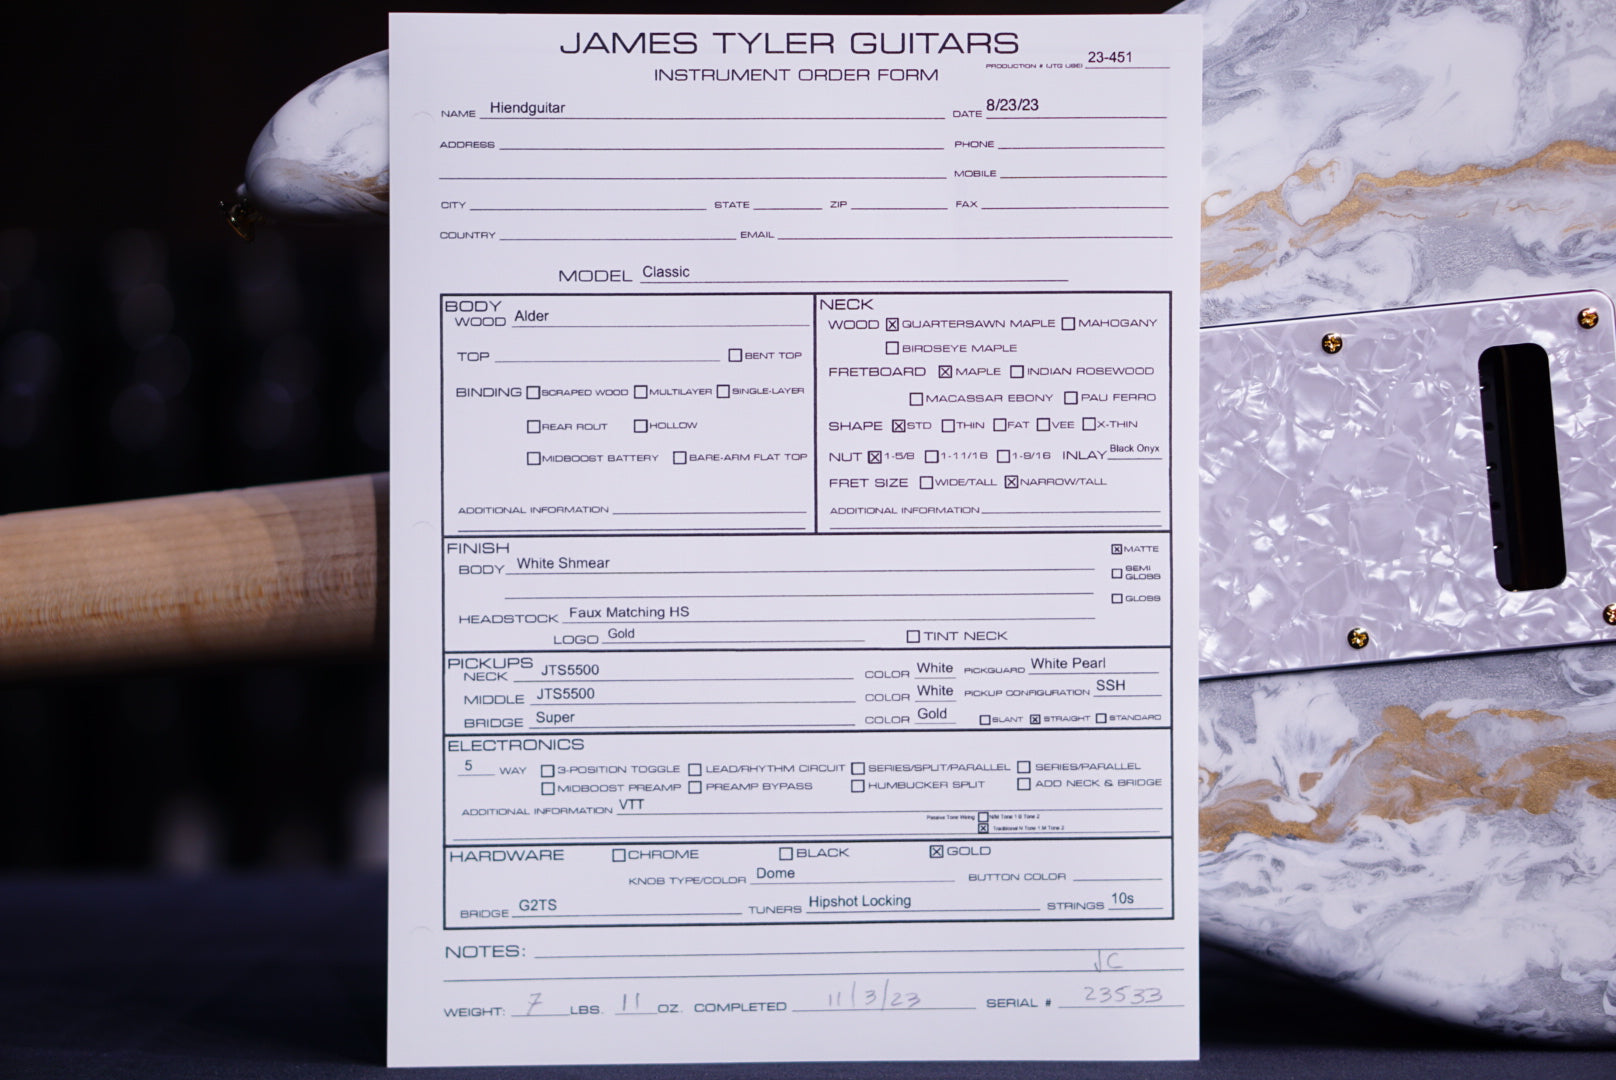 JAMES TYLER GUITARS
INSTRUMENT ORDER FORM
PRODUCTION # (JTG USE) 23-451
NAME Hiendguitar DATE 8/23/23
ADDRESS PHONE
MOBILE
CITY STATE ZIP FAX
COUNTRY EMAIL
MODEL Classic
BODY
WOOD Alder
TOP ☐ BENT TOP
BINDING ☐ SCRAPED WOOD ☐ MULTILAYER ☐ SINGLE-LAYER
☐ REAR ROUT ☐ HOLLOW
☐ MIDBOOST BATTERY ☐ BARE-ARM FLAT TOP
ADDITIONAL INFORMATION
NECK
WOOD ☒ QUARTERSAWN MAPLE ☐ MAHOGANY
☐ BIRDSEYE MAPLE
FRETBOARD ☒ MAPLE ☐ INDIAN ROSEWOOD
☐ MACASSAR EBONY ☐ PAU FERRO
SHAPE ☒ STD ☐ THIN ☐ FAT ☐ VEE ☐ X-THIN
NUT ☒ 1-5/8 ☐ 1-11/16 ☐ 1-9/16 INLAY Black Onyx
FRET SIZE ☐ WIDE/TALL ☒ NARROW/TALL
ADDITIONAL INFORMATION
FINISH
BODY White Shmear
☒ MATTE
☐ SEMI GLOSS
☐ GLOSS
HEADSTOCK Faux Matching HS
LOGO Gold ☐ TINT NECK
PICKUPS
NECK JTS5500 COLOR White PICKGUARD White Pearl
MIDDLE JTS5500 COLOR White PICKUP CONFIGURATION SSH
BRIDGE Super COLOR Gold ☐ SLANT ☒ STRAIGHT ☐ STANDARD
ELECTRONICS
5 WAY ☐ 3-POSITION TOGGLE ☐ LEAD/RHYTHM CIRCUIT ☐ SERIES/SPLIT/PARALLEL ☐ SERIES/PARALLEL
☐ MIDBOOST PREAMP ☐ PREAMP BYPASS ☐ HUMBUCKER SPLIT ☐ ADD NECK & BRIDGE
ADDITIONAL INFORMATION VTT
Passive Tone Wiring ☐ N/M Tone 1 B Tone 2
☒ Traditional N Tone 1 M Tone 2
HARDWARE ☐ CHROME ☐ BLACK ☒ GOLD
KNOB TYPE/COLOR Dome BUTTON COLOR
BRIDGE G2TS TUNERS Hipshot Locking STRINGS 10s
NOTES:
JC
WEIGHT: 7 LBS. 11 OZ. COMPLETED 11/3/23 SERIAL # 23533